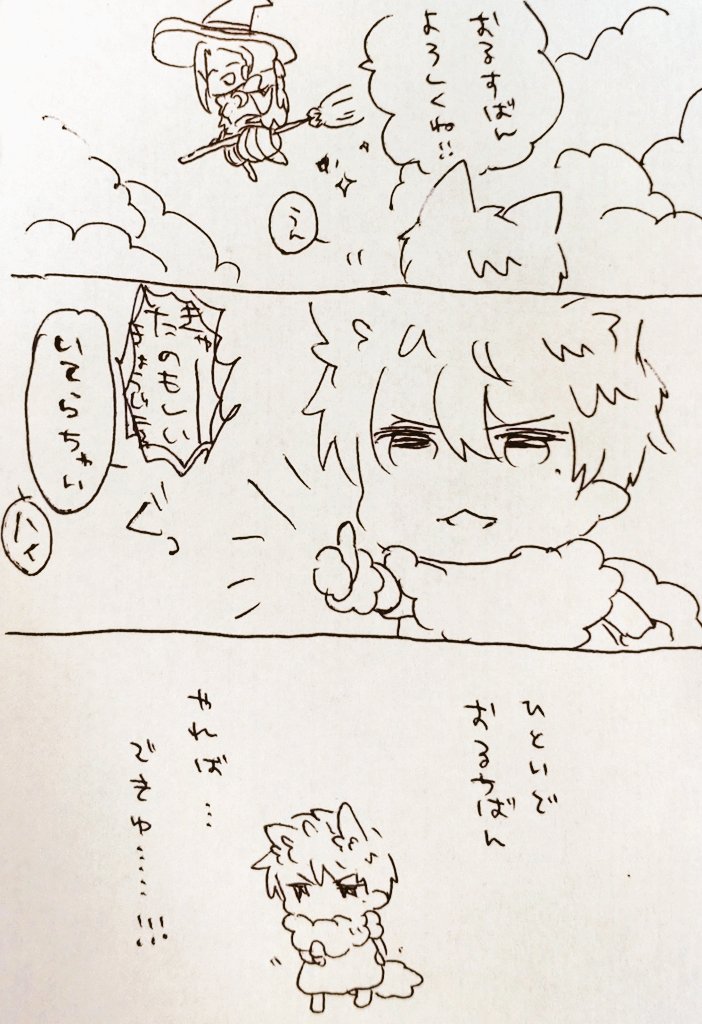 おるすばん
よろしくね!!
うん
きゃー
たのもしい
いてらちゃい
ハイ
ひといで
おるちばん
やれば…
できゅ……!!!